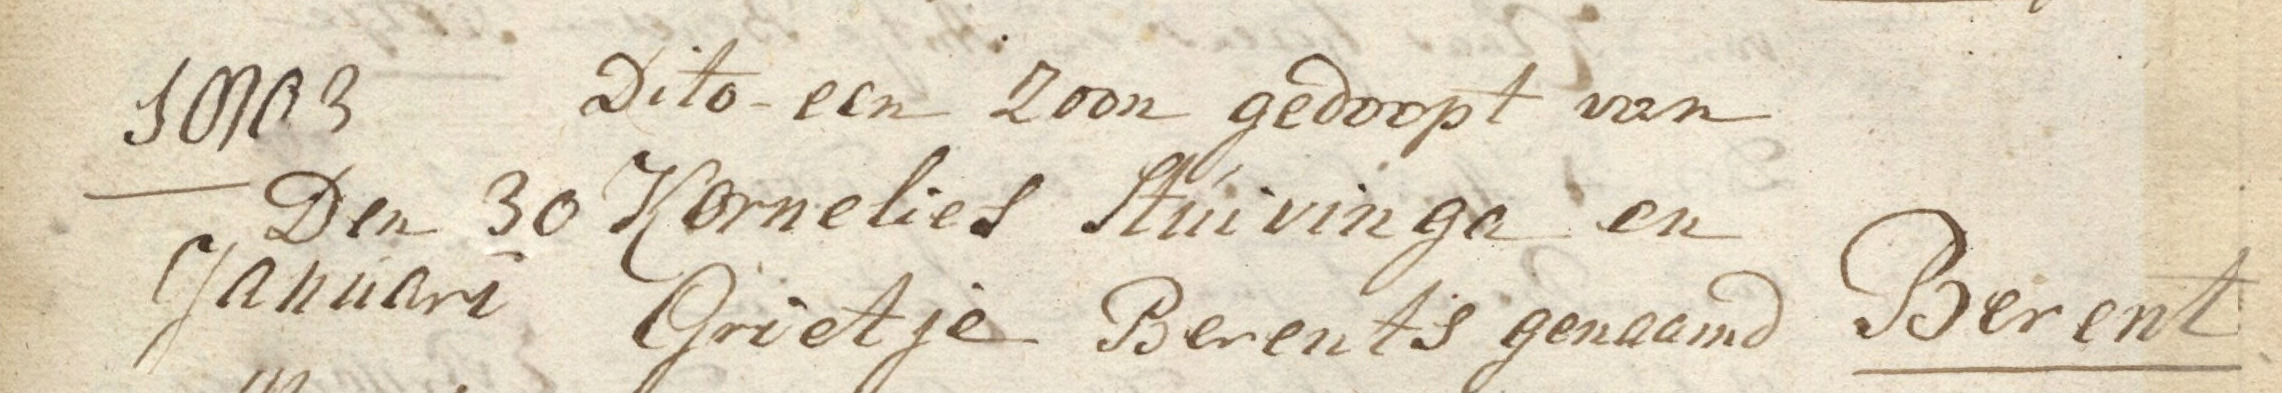 Dito een Zoon gedoopt van
Den 30 Kornelies Stuivinga en
Januari Grietje Berents genaamd Berent